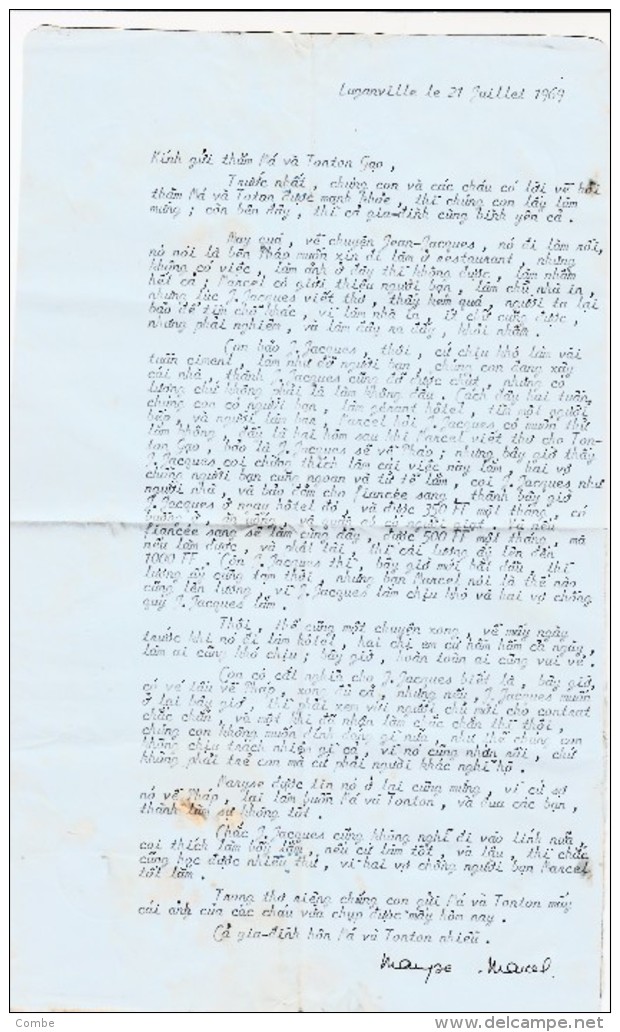 Luganville le 21 Juillet 1969
Kính gửi thăm Má và Tonton Gạo,
Trước nhất, chúng con và các cháu có lời về hỏi
thăm Má và Toton được mạnh khỏe, thì chúng con lấy làm
mừng; còn bên đây, thì cả gia-đình cũng bình yên cả.
May quá, về chuyện Jean-Jacques, nó đi làm rồi,
nó nói là bên Pháp muốn xin đi làm ở restaurant, nhưng
không có việc, làm ảnh ở đây thì không được, làm nhầm
hết cả; Marcel có giới thiệu người bạn, làm chủ nhà in,
nhưng lúc J. Jacques viết thư, thấy kém quá, người ta lại
bảo để tìm chỗ khác, vì làm nhà in, ít chữ cũng được,
nhưng phải nghiêm, và làm đây ra đấy, khỏi nhầm.
Con bảo J. Jacques, thôi, cứ chịu khó làm vài
tuần ciment, làm như đỡ người bạn, chúng con đang xây
cái nhà, thành J. Jacques cũng đỡ được chút, nhưng có
lương chứ không phải là làm không đâu. Cách đây hai tuần,
chúng con có người bạn, làm gérant hôtel, tìm một người
bếp, và người làm bar, Marcel hỏi J. Jacques có muốn thử
làm không, đấy là hai hôm sau khi Marcel viết thư cho Ton-
ton Gạo, bảo là J. Jacques sẽ về Pháp; nhưng bây giờ thấy
J. Jacques coi chừng thích làm cái việc này lắm, hai vợ
chồng người bạn cũng ngoan và tử tế lắm, coi J. Jacques như
người nhà, và bảo đảm cho fiancée sang, thành bây giờ
J. Jacques ở ngay hôtel đó, và được 350 FF một tháng, có
buồng ở, ăn uống, và quần áo có người giặt. Và nếu
fiancée sang sẽ làm cùng đấy, được 500 FF một tháng, mà
nếu làm được, và phải tài, thì cái lương ấy lên đến
1000 FF. Còn J. Jacques thì, bây giờ mới bắt đầu, thì
lương ấy cũng tạm thôi, nhưng bạn Marcel nói là thế nào
cũng lên lương, vì J. Jacques làm chịu khó và hai vợ chồng
quý J. Jacques lắm.
Thôi, thế cũng một chuyện xong, về mấy ngày
trước khi nó đi làm hôtel, hai chị em cứ hầm hầm cả ngày,
làm ai cũng khó chịu; bây giờ, hoàn toàn ai cũng vui vẻ.
Con có cắt nghĩa cho J. Jacques biết là, bây giờ,
có vé tầu về Pháp, xong đủ cả, nhưng nếu J. Jacques muốn
ở lại bây giờ, thì phải xem với người chủ mới cho contrat
chắc chắn, và một khi đã nhận làm chắc chắn thì thôi,
chúng con không muốn dính dáng gì nữa, như thế chúng con
không chịu trách nhiệm gì cả, vì nó cũng nhớn rồi, chứ
không phải trẻ con mà cứ phải người khác nghĩ hộ.
Maryse được tin nó ở lại cũng mừng, vì cứ sợ
nó về Pháp, lại làm buồn Má và Tonton, và đua các bạn,
thành làm sự không tốt.
Chắc J. Jacques cũng không nghĩ đi vào lính nữa
coi thích làm bây lắm, nếu cứ làm tốt và lâu, thì chắc
cũng học được nhiều thứ, vì hai vợ chồng người bạn Marcel
tốt lắm.
Trong thơ riêng chúng con gửi Má và Tonton mấy
cái ảnh của các cháu vừa chụp được mấy hôm nay.
Cả gia-đình hôn Má và Tonton nhiều.
Maryse Marcel
Combe
www.delcampe.net